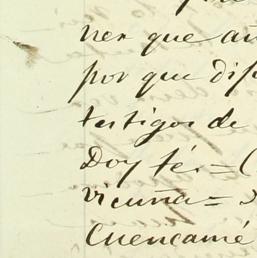 ner que añ
por que dis
testigos de
Doy fé. = (
vicuña =
Cuencamé